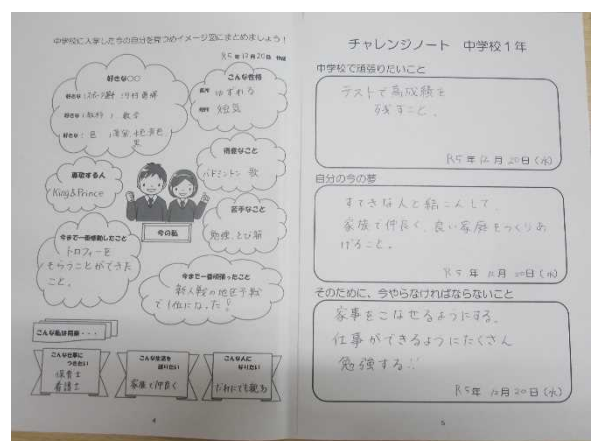 中学校に入学した今の自分を見つめイメージ図にまとめましょう！
R5年12月20日
好きな○○
好きな(スポーツ選手)
好きな(教科)数学
好きな(色)
こんな性格
長所 ゆずれる
短所 短気
尊敬する人
King&Prince
得意なこと
バドミントン 歌
苦手なこと
勉強、とび箱
今の私
今まで一番感動したこと
トロフィーを
もらうことができた
こと。
今まで一番頑張ったこと
新人戦の地区予戦
で1位になった！
こんな私は将来・・・
こんな仕事に
つきたい
保育士
看護士
こんな生活を
送りたい
家族で仲良く
こんな人に
なりたい
だれにでも親切
4
チャレンジノート 中学校1年
中学校で頑張りたいこと
テストで高成績を
残すこと。
R5年12月20日(水)
自分の今の夢
すてきな人と結こんして、
家族で仲良く、良い家庭をつくりあ
げること。
R5年12月20日(水)
そのために、今やらなければならないこと
家事をこなせるようにする。
仕事ができるようにたくさん
勉強する!!
R5年12月20日(水)
5